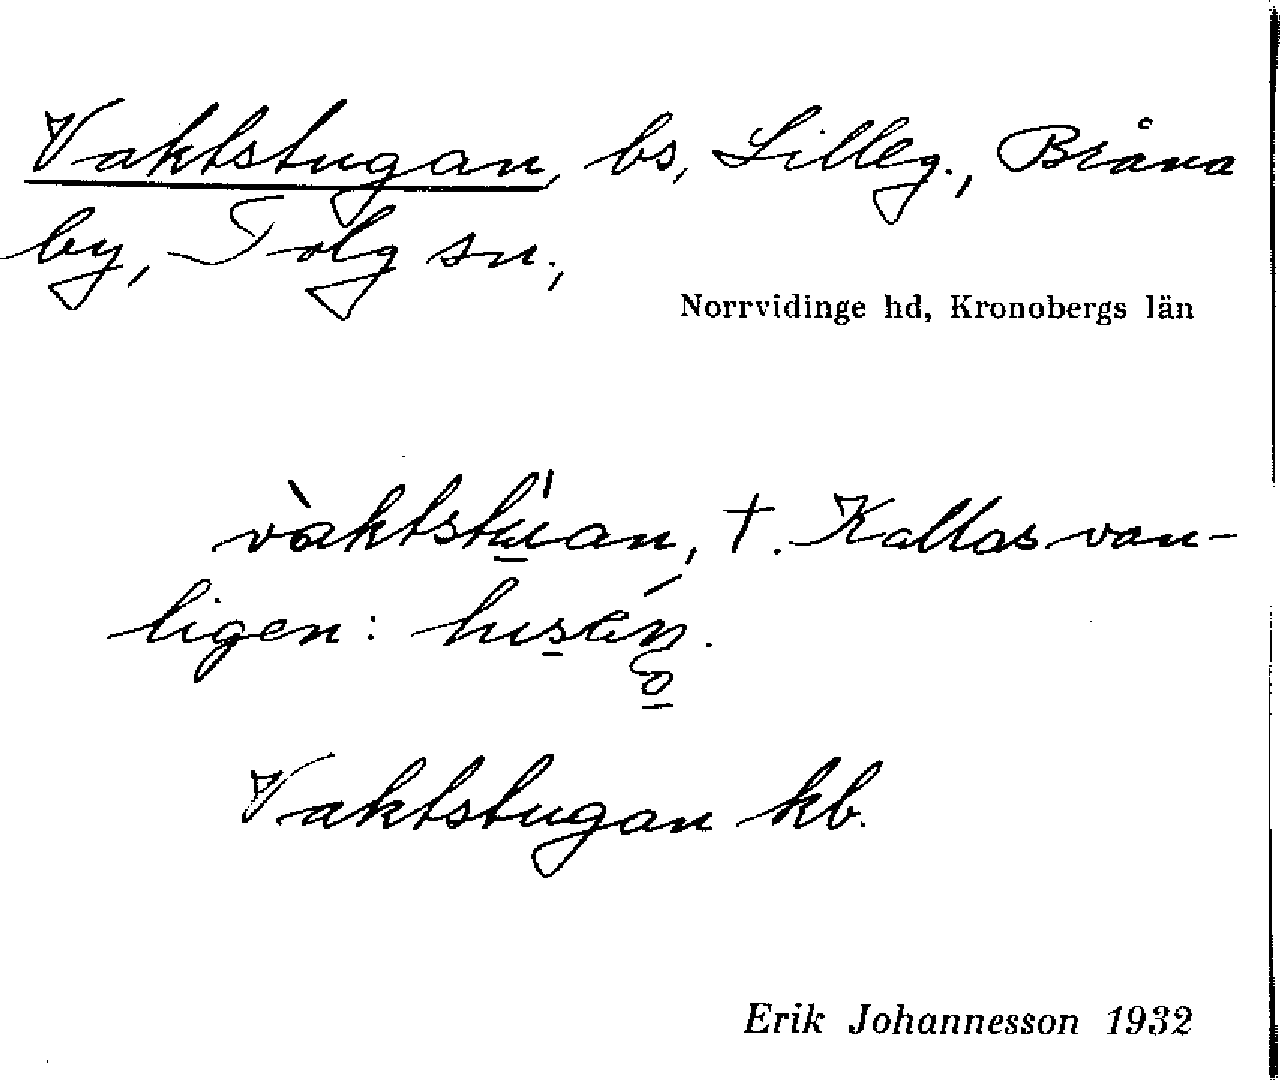 Vaktstugan, bs, Lilleg., Bråna
by, Tolg sn.,
Norrvidinge hd, Kronobergs län
vàktstu̲'an, †. Kallas van-
ligen:
Vaktstugan kb.
Erik Johannesson 1932